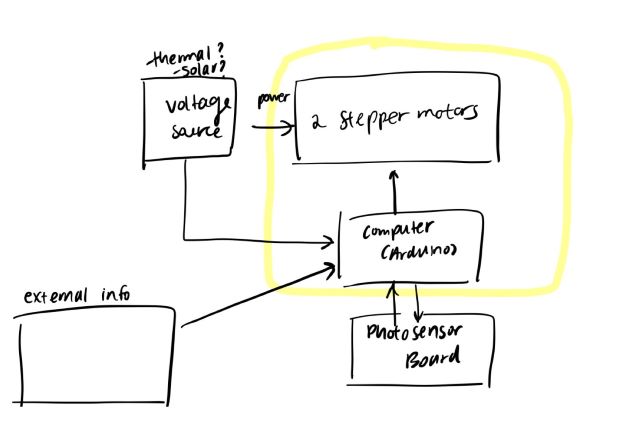 -thermal?
-solar?
voltage
source
power
2 stepper motors
computer
(Arduino)
external info
Photosensor
Board